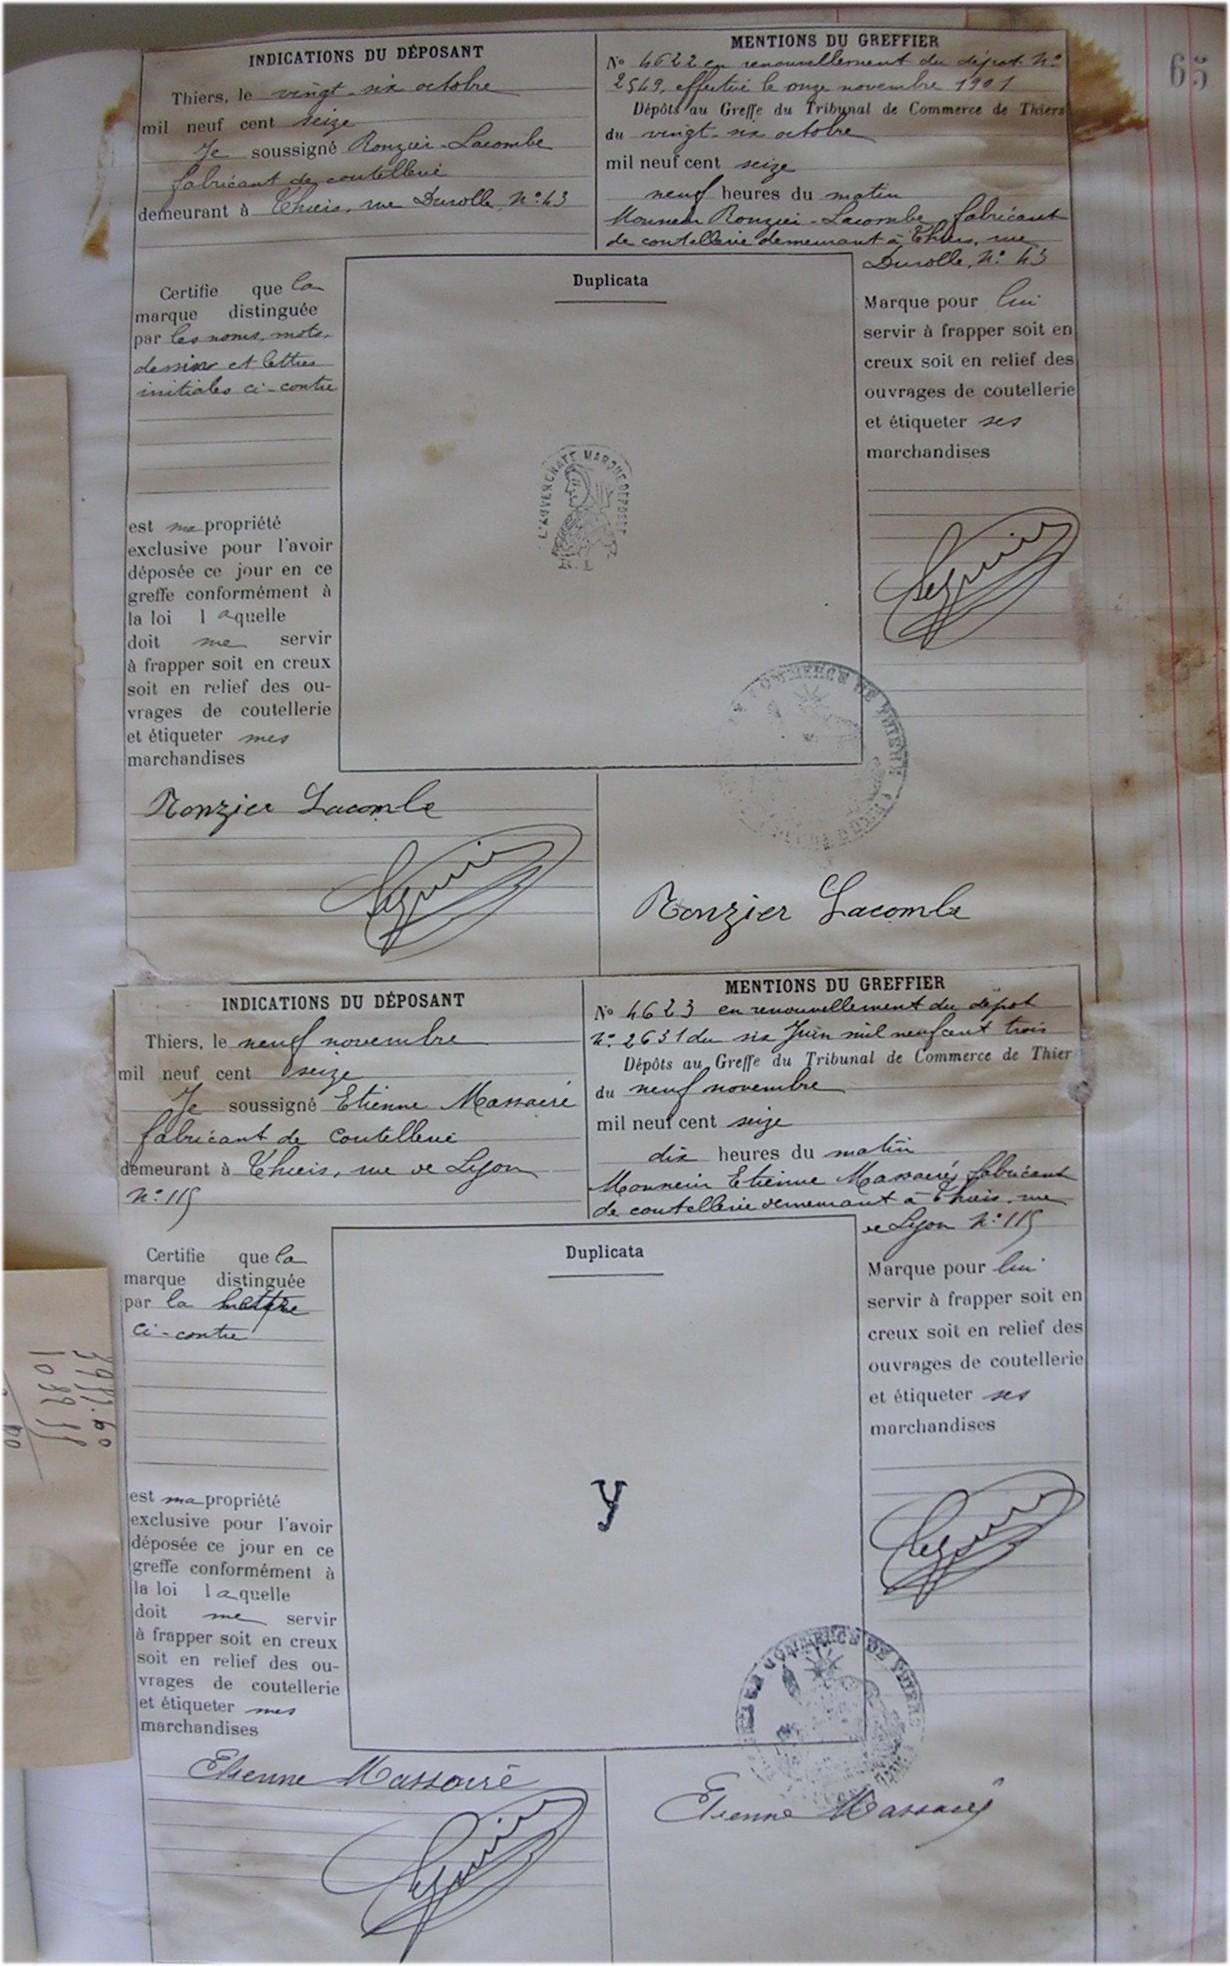 65
INDICATIONS DU DÉPOSANT
Thiers, le vingt-six octobre
mil neuf cent seize
Je soussigné Ronzier-Lacombe
fabricant de coutellerie
demeurant à Thiers, rue Durolle, N° 43
MENTIONS DU GREFFIER
No 4622 en renouvellement du dépot N°
2549, effectué le onze novembre 1901
Dépôts au Greffe du Tribunal de Commerce de Thiers
du vingt-six octobre
mil neuf cent seize
neuf heures du matin
Monsieur Ronzier-Lacombe, fabricant
de coutellerie demeurant à Thiers, rue
Durolle, N° 43
Certifie que la
marque distinguée
par les noms, mots,
dessins et lettres
initiales ci-contre
est ma propriété
exclusive pour l'avoir
déposée ce jour en ce
greffe conformément à
la loi laquelle
doit me servir
à frapper soit en creux
soit en relief des ou-
vrages de coutellerie
et étiqueter mes
marchandises
Duplicata
L'AUVERGNATE MARQUE DÉPOSÉE
R. L
Marque pour lui
servir à frapper soit en
creux soit en relief des
ouvrages de coutellerie
et étiqueter ses
marchandises
COMMERCE DE THIERS
Ronzier Lacombe
Ronzier Lacombe
INDICATIONS DU DÉPOSANT
Thiers, le neuf novembre
mil neuf cent seize
Je soussigné Etienne Massairé
fabricant de coutellerie
demeurant à Thiers, rue de Lyon
N° 115
MENTIONS DU GREFFIER
No 4623 en renouvellement du dépot
N° 2631 du six Juin mil neuf cent trois
Dépôts au Greffe du Tribunal de Commerce de Thier
du neuf novembre
mil neuf cent seize
dix heures du matin
Monsieur Etienne Massairé, fabricant
de coutellerie demeurant à Thiers, rue
de Lyon N° 115
Certifie que la
marque distinguée
par la lettre
ci-contre
est ma propriété
exclusive pour l'avoir
déposée ce jour en ce
greffe conformément à
la loi laquelle
doit me servir
à frapper soit en creux
soit en relief des ou-
vrages de coutellerie
et étiqueter mes
marchandises
Duplicata
y
Marque pour lui
servir à frapper soit en
creux soit en relief des
ouvrages de coutellerie
et étiqueter ses
marchandises
COMMERCE DE THIERS
Etienne Massairé
Etienne Massairé